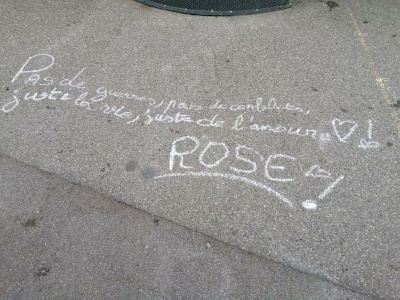 Pas de guerres, pas de conflits,
juste la vie, juste de l'amour ♡!
ROSE!